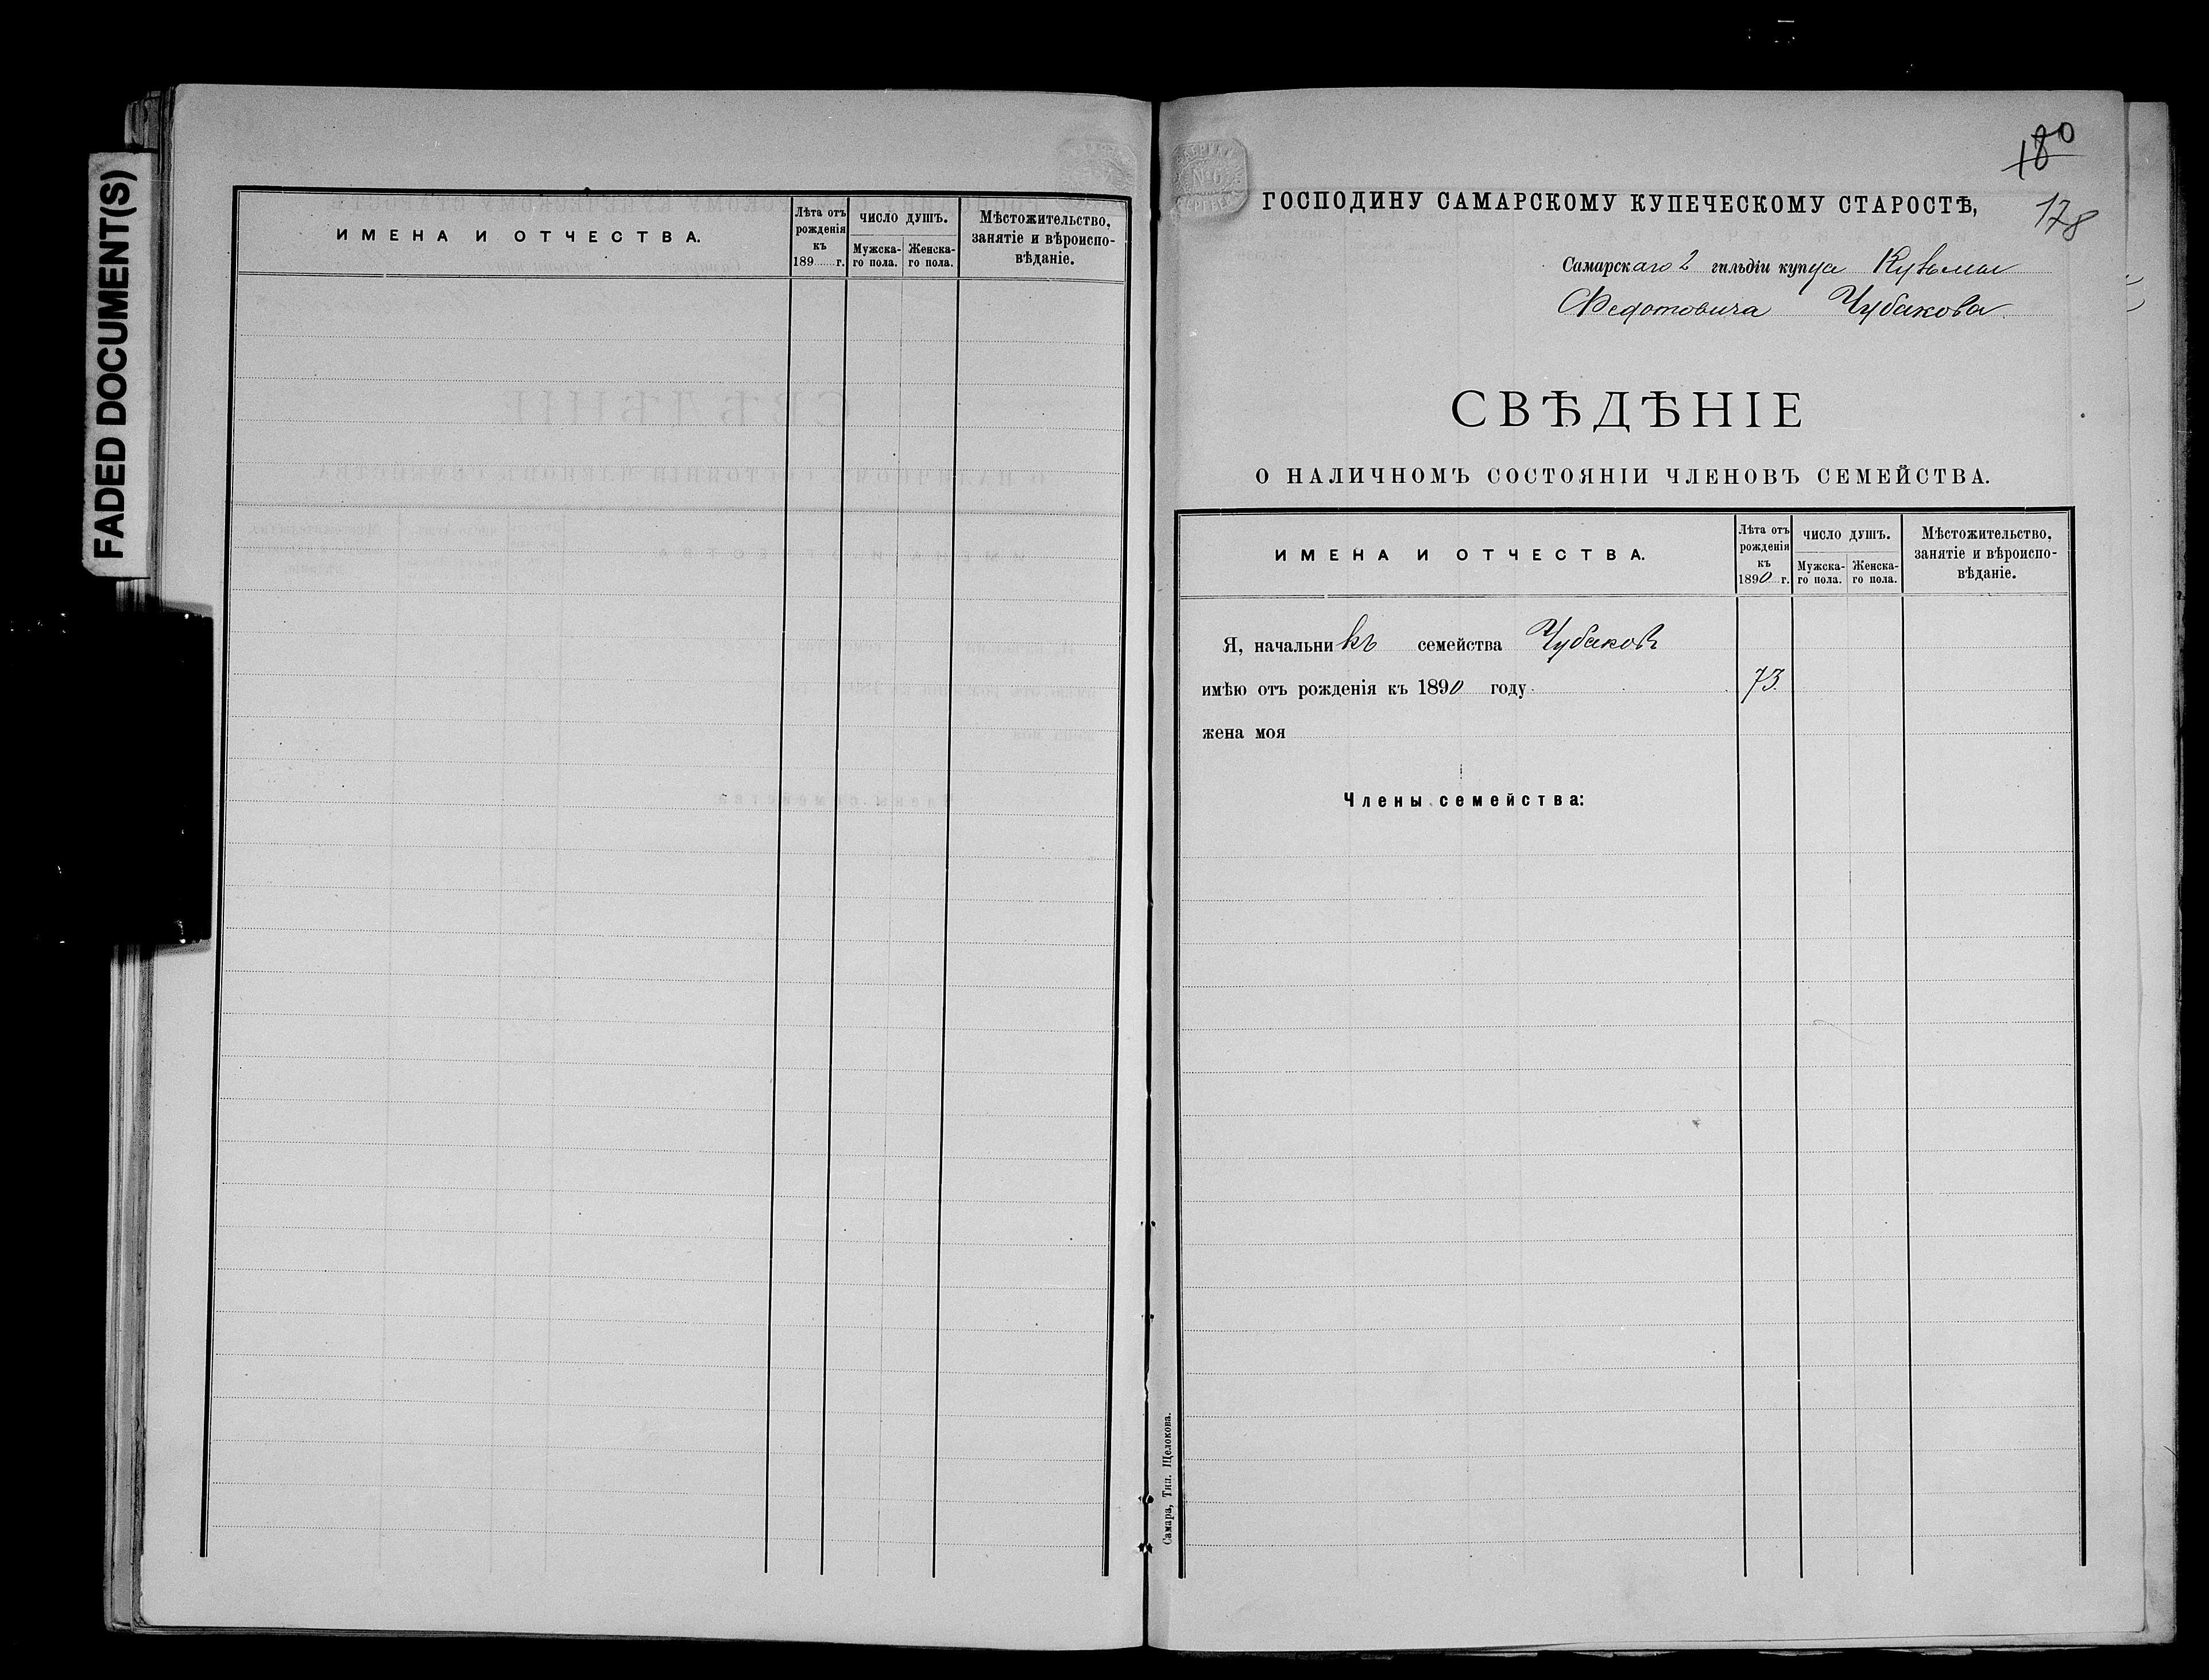 FADED DOCUMENT(S)
ИМЕНА И ОТЧЕСТВА.
Лѣта отъ
рожденія
къ
189 г.
ЧИСЛО ДУШЪ.
Мужска-
го пола.
Женска-
го пола.
Мѣстожительство,
занятіе и вѣроиспо-
вѣданіе.
180
178
ГОСПОДИНУ САМАРСКОМУ КУПЕЧЕСКОМУ СТАРОСТѢ,
Самарскаго 2 гильдіи купца Кузьмы
Федотовича Чубакова
СВѢДѢНІЕ
О НАЛИЧНОМЪ СОСТОЯНІИ ЧЛЕНОВЪ СЕМЕЙСТВА.
ИМЕНА И ОТЧЕСТВА.
Лѣта отъ
рожденія
къ
1890 г.
ЧИСЛО ДУШЪ.
Мужска-
го пола.
Женска-
го пола.
Мѣстожительство,
занятіе и вѣроиспо-
вѣданіе.
Я, начальникъ семейства Чубаковъ
имѣю отъ рожденія къ 1890 году 73
жена моя
Члены семейства:
Самара, Тип. Щелокова.